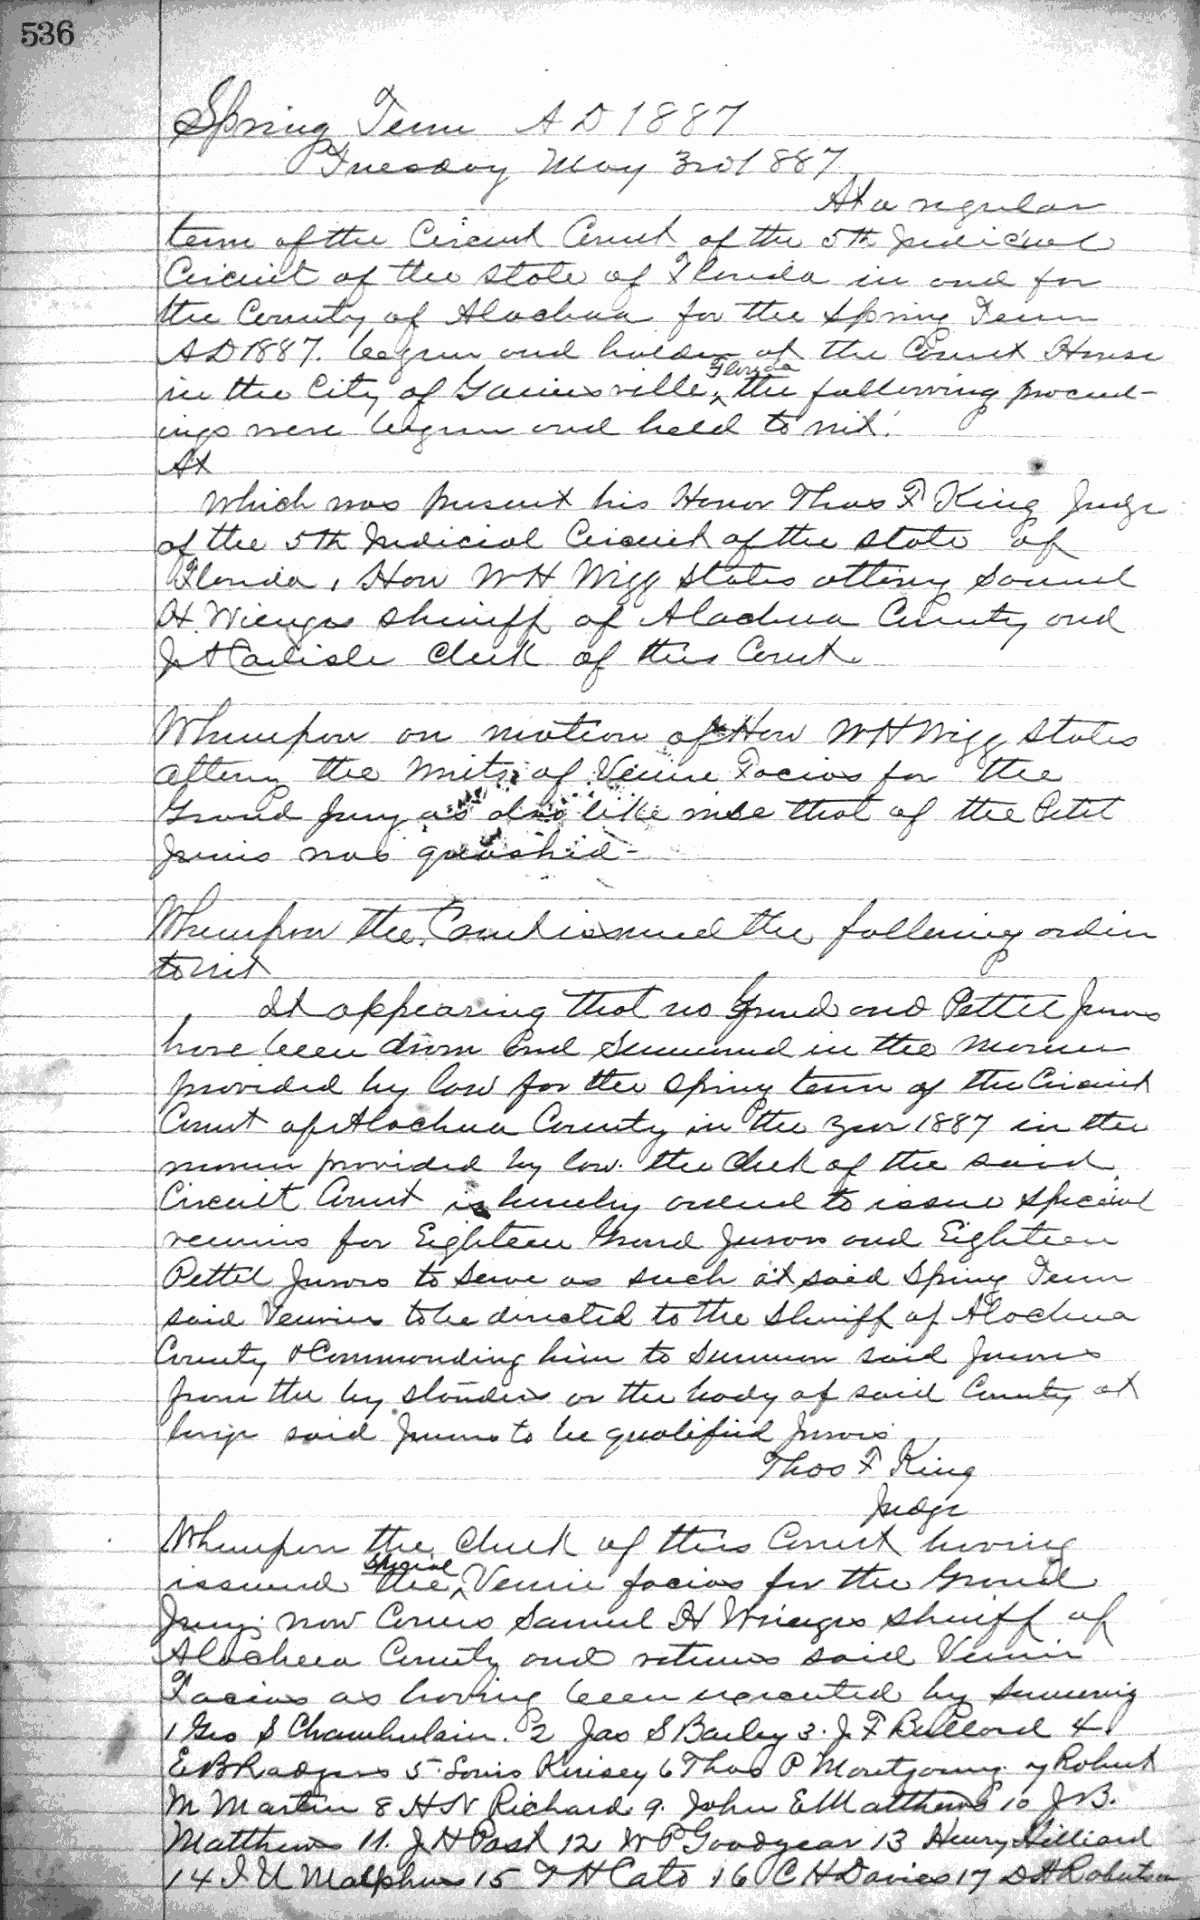 536
Spring Term A D 1887
Tuesday May 3rd 1887
At a regular
term of the Circuit Court of the 5th Judicial
Circuit of the State of Florida in and for
the County of Alachua for the Spring Term
AD 1887. begun and holden at the Court House
in the City of Gainesville, Florida the following proceed-
ings were begun and held to wit:
At
which was present his Honor Thos F King Judge
of the 5th Judicial Circuit of the State of
Florida, Hon W H Wigg States attiny Samuel
H. Wienges Sheriff of Alachua County and
J A Carlisle Clerk of this Court.
Whereupon on motion of Hon W H Wigg States
attiny the writs of Venire Facias for the
Grand Jury as also like wise that of the Petit
Juries was quashed-
Whereupon the Court issued the following order
to wit
It appearing that no Grand and Pettit Jurors
have been drawn and Summoned in the manner
provided by law for the Spring term of the Circuit
Court of Alachua County in the year 1887 in the
manner provided by law. the Clerk of the said
Circuit Court is hereby ordered to issue special
venires for Eighteen Grand Jurors and Eighteen
Pettit Jurors to serve as such at said Spring Term
said Venires to be directed to the Sheriff of Alachua
County & Commanding him to Summon said Jurors
from the by standers or the body of said County at
large said Jurors to be qualified Jurors
Thos F King
Judge
Whereupon the Clerk of this Court having
issued the special Venire facias for the Grand
Jury. now Comes Samuel H Wienges Sheriff of
Alachua County and returns said Venire
Facias as having been executed by Summonig
1 Geo S Chamberlain. 2 Jas S Bailey 3. J. F Bullard 4.
E B Rodgers 5. Louis Kinsey 6 Thos P Montgomery. 7 Robert
M Martin 8 H N Richard 9. John E Matthews 10 J B.
Matthews 11. J H Post 12 W P Goodyear 13 Henry Hilliard
14 J U Malphus 15 F H Cato 16 C H Davies 17 D H Robertson